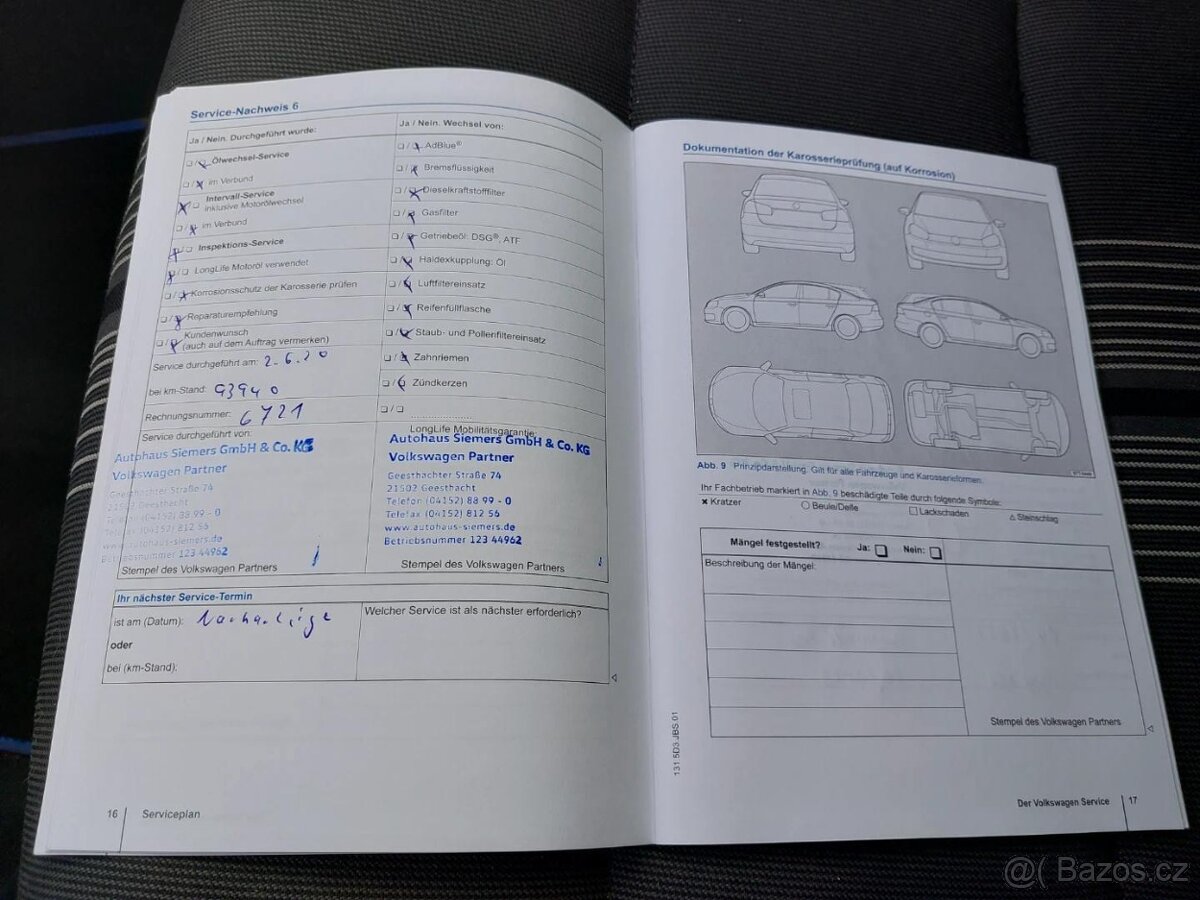 Service-Nachweis 6
Ja / Nein. Durchgeführt wurde:
☐/☒ Ölwechsel-Service
☐/☒ im Verbund
☒/☐ Intervall-Service
inklusive Motorölwechsel
☐/☒ im Verbund
☒/☐ Inspektions-Service
☒/☐ LongLife Motoröl verwendet
☐/☒ Korrosionsschutz der Karosserie prüfen
☐/☒ Reparaturempfehlung
☐/☒ Kundenwunsch
(auch auf dem Auftrag vermerken)
Service durchgeführt am: 2.6.20
bei km-Stand: 93940
Rechnungsnummer: 6721
Service durchgeführt von:
Autohaus Siemers GmbH & Co. KG
Volkswagen Partner
Geesthachter Straße 74
21502 Geesthacht
Telefon (04152) 88 99 - 0
Telefax (04152) 812 56
www.autohaus-siemers.de
Betriebsnummer 123 44962
Stempel des Volkswagen Partners
Ja / Nein. Wechsel von:
☐/☒ AdBlue®
☐/☒ Bremsflüssigkeit
☐/☒ Dieselkraftstofffilter
☐/☒ Gasfilter
☐/☒ Getriebeöl: DSG®, ATF
☐/☒ Haldexkupplung: Öl
☐/☒ Luftfiltereinsatz
☐/☒ Reifenfüllflasche
☐/☒ Staub- und Pollenfiltereinsatz
☐/☒ Zahnriemen
☐/☒ Zündkerzen
☐/☐ ....................
LongLife Mobilitätsgarantie:
Autohaus Siemers GmbH & Co. KG
Volkswagen Partner
Geesthachter Straße 74
21502 Geesthacht
Telefon (04152) 88 99 - 0
Telefax (04152) 812 56
www.autohaus-siemers.de
Betriebsnummer 123 44962
Stempel des Volkswagen Partners
Ihr nächster Service-Termin
ist am (Datum):
oder
bei (km-Stand):
Welcher Service ist als nächster erforderlich?
16 Serviceplan
Dokumentation der Karosserieprüfung (auf Korrosion)
Abb. 9 Prinzipdarstellung. Gilt für alle Fahrzeuge und Karosserieformen.
Ihr Fachbetrieb markiert in Abb. 9 beschädigte Teile durch folgende Symbole:
× Kratzer ○ Beule/Delle □ Lackschaden △ Steinschlag
Mängel festgestellt? Ja: ☐ Nein: ☐
Beschreibung der Mängel:
Stempel des Volkswagen Partners
131.5D3.JBS.01
Der Volkswagen Service 17
@( Bazos.cz